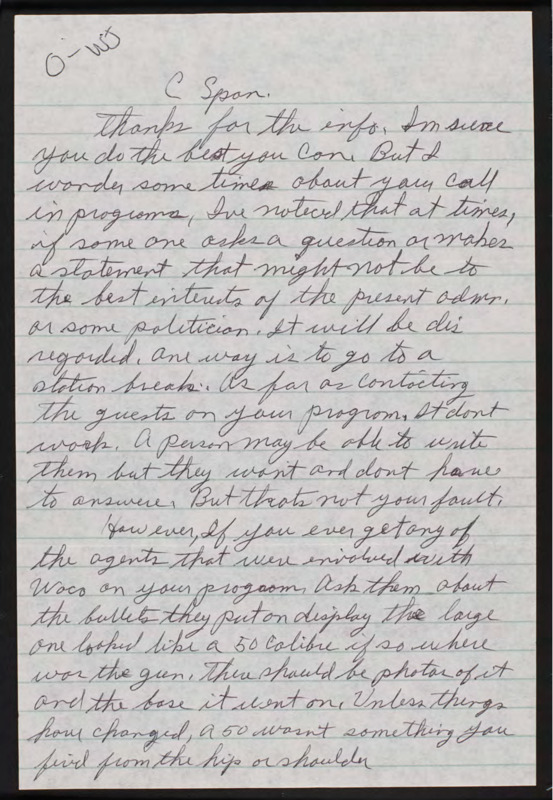 O-WJ
C Span.
Thanks for the info. Im sure
you do the best you can. But I
wonder some times about your call
in programs, Ive noticed that at times,
if some one asks a question or makes
a statement that might not be to
the best interests of the present admr.
or some politician. It will be dis
regarded. One way is to go to a
station break. As far as contacting
the guests on your program. It dont
work. A person may be able to write
them but they wont and dont have
to answere. But thats not your fault.
However, If you ever get any of
the agents that were envolved with
Waco on your progaom, Ask them about
the bullets they put on display the large
one looked like a 50 Calibre if so where
was the gun. There should be photos of it
and the base it went on. Unless things
have changed, a 50 wasnt something you
fired from the hip or shoulder